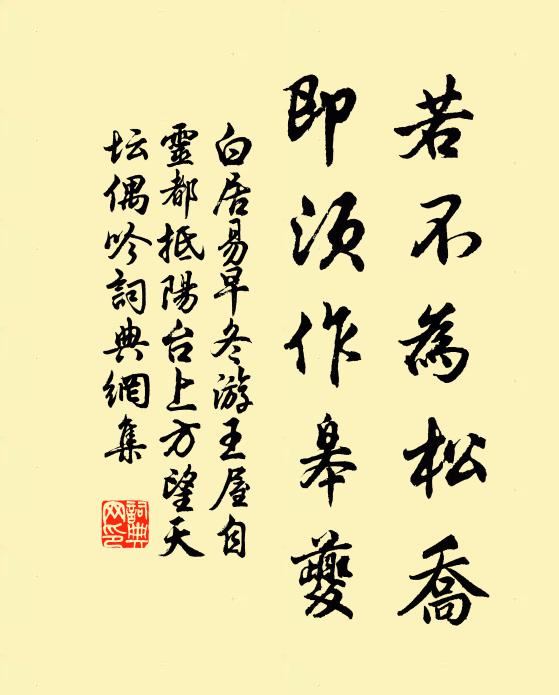 若不為松喬
即須作皋夔
白居易早冬游王屋自
靈都抵陽台上方望天
坛偶吟詞典網集
詞典网印